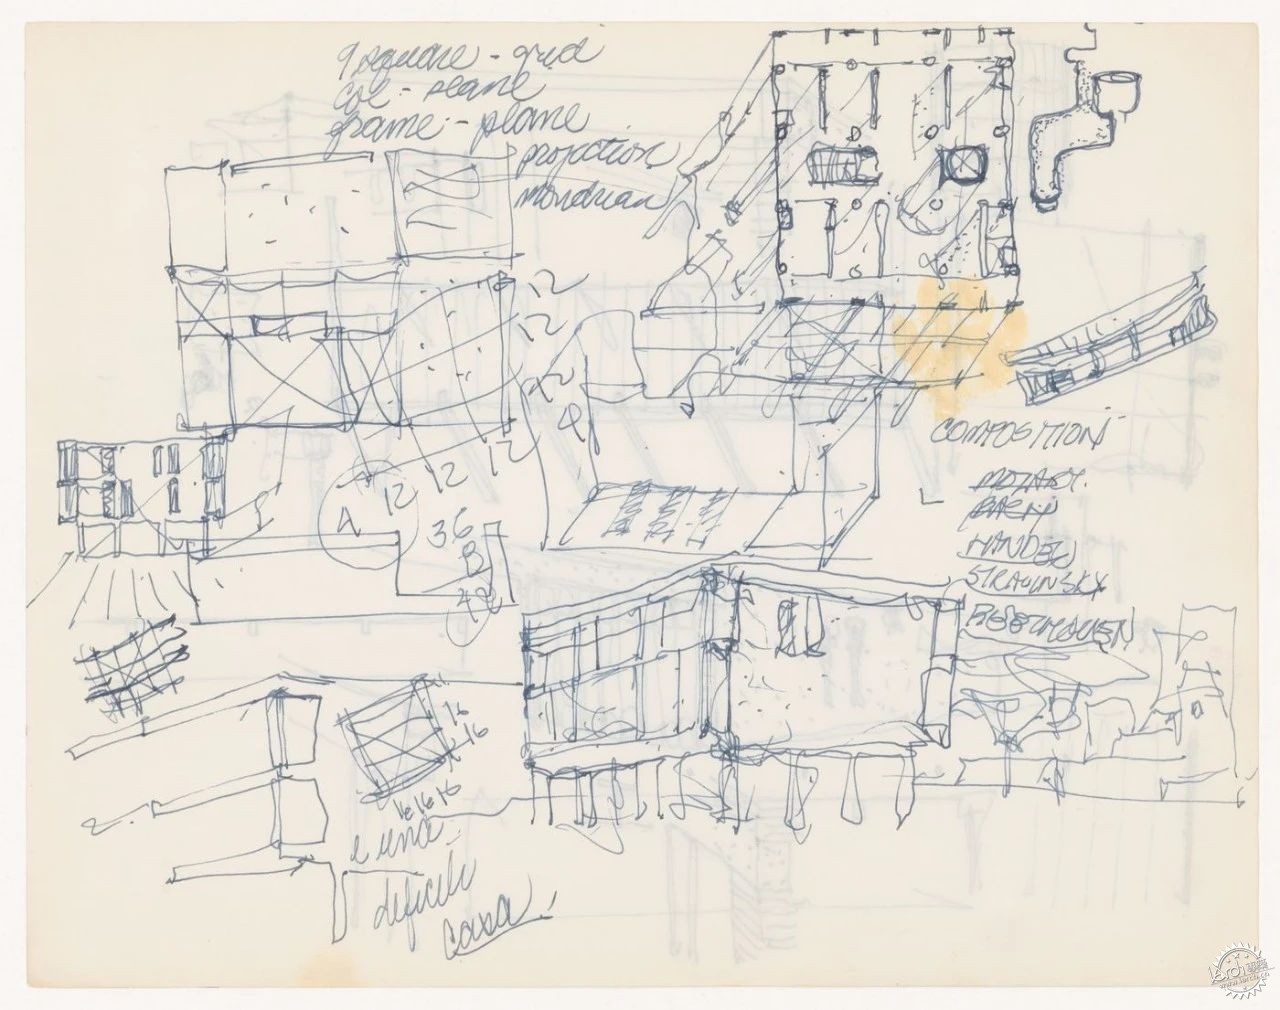 9 square - grid
col - plane
frame - plane
projection
mondrian
12
12
12
12
12
12
A
36
B
48
COMPOSITION
MOZART
BACH
HANDEL
STRAVINSKY
BEETHOVEN
16
16
16 16 16
e una
deficile
casa!